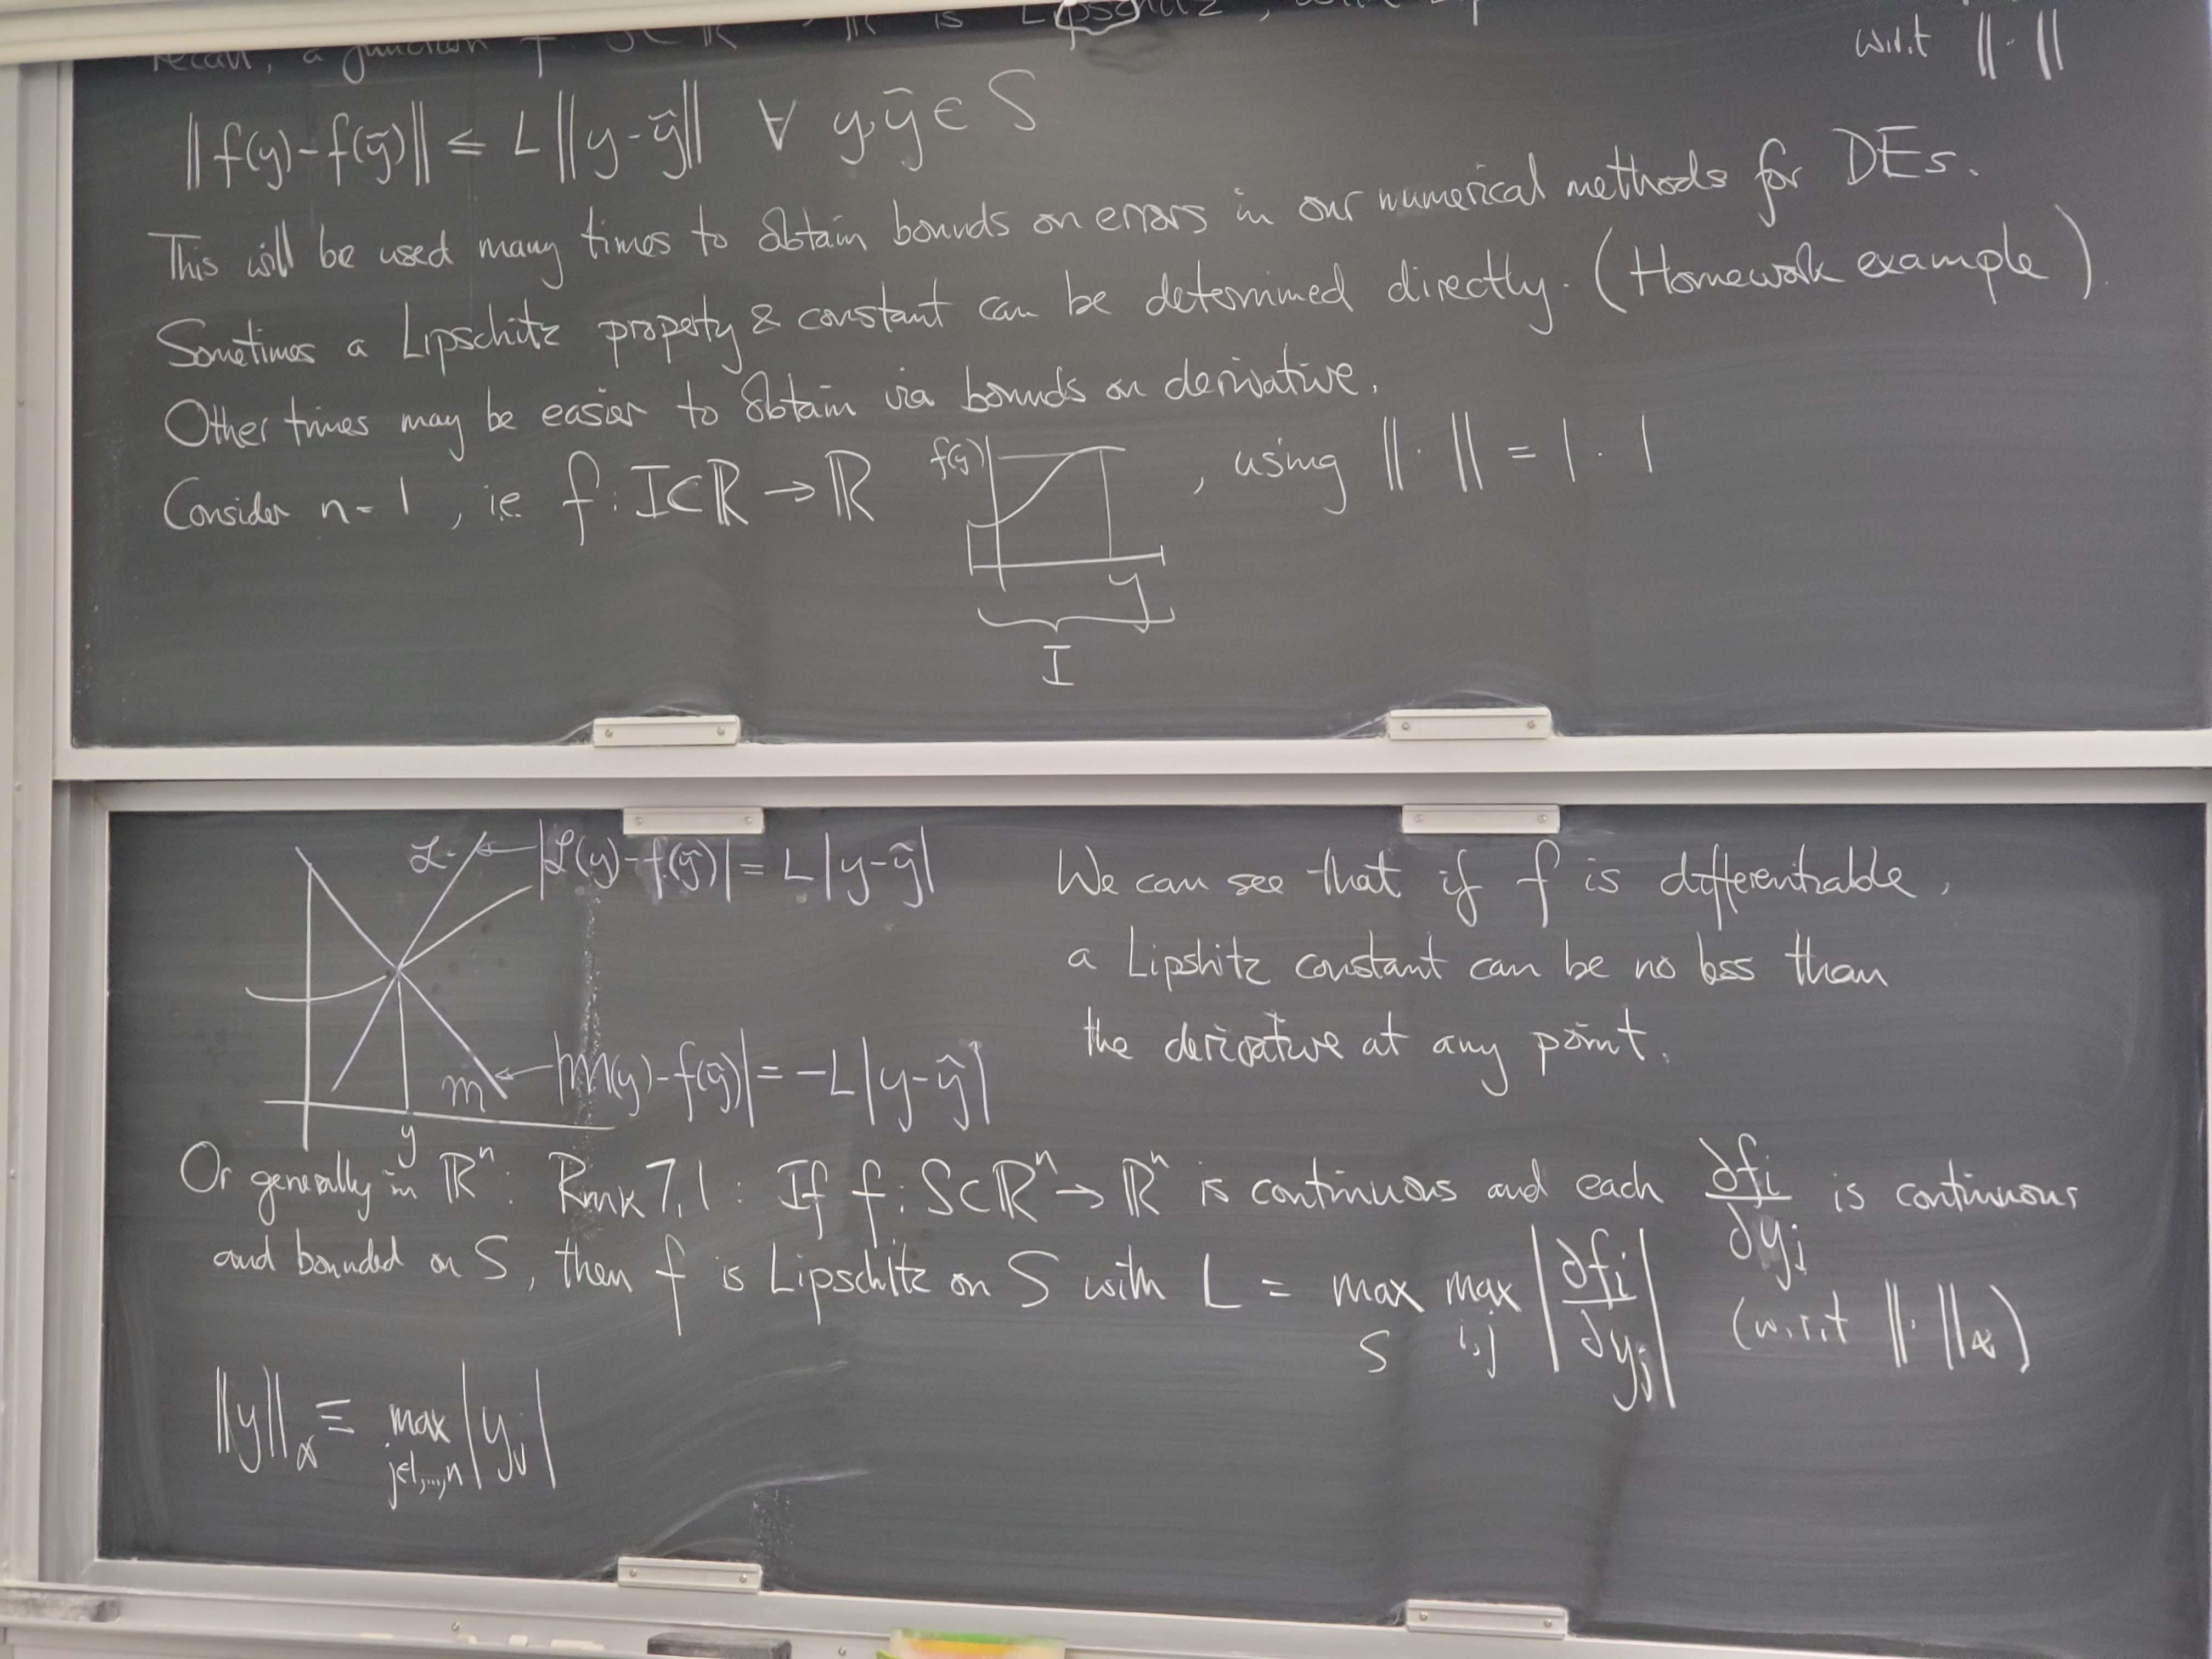 Recall, a function f: S⊂ℝ ℝ is Lipschitz, with
w.r.t ‖·‖
‖f(y)-f(ỹ)‖ ≤ L‖y-ỹ‖ ∀ y,ỹ ∈ S
This will be used many times to obtain bounds on errors in our numerical methods for DEs.
Sometimes a Lipschitz property & constant can be determined directly. (Homework example).
Other times may be easier to obtain via bounds on derivative.
Consider n=1, ie f: I⊂ℝ → ℝ , using ‖·‖ = |·|
f(y)
y
I
ℒ |ℒ(y)-f(ỹ)| = L|y-ỹ|
m |m(y)-f(ỹ)| = -L|y-ỹ|
y
We can see that if f is differentiable,
a Lipshitz constant can be no less than
the derivative at any point.
Or generally in ℝⁿ: Rmk 7.1: If f: S⊂ℝⁿ → ℝⁿ is continuous and each ∂fᵢ/∂yⱼ is continuous
and bounded on S, then f is Lipschitz on S with L = max_S max_{i,j} |∂fᵢ/∂yⱼ| (w.r.t ‖·‖_∞)
‖y‖_∞ ≡ max_{j∈1,...,n} |yⱼ|